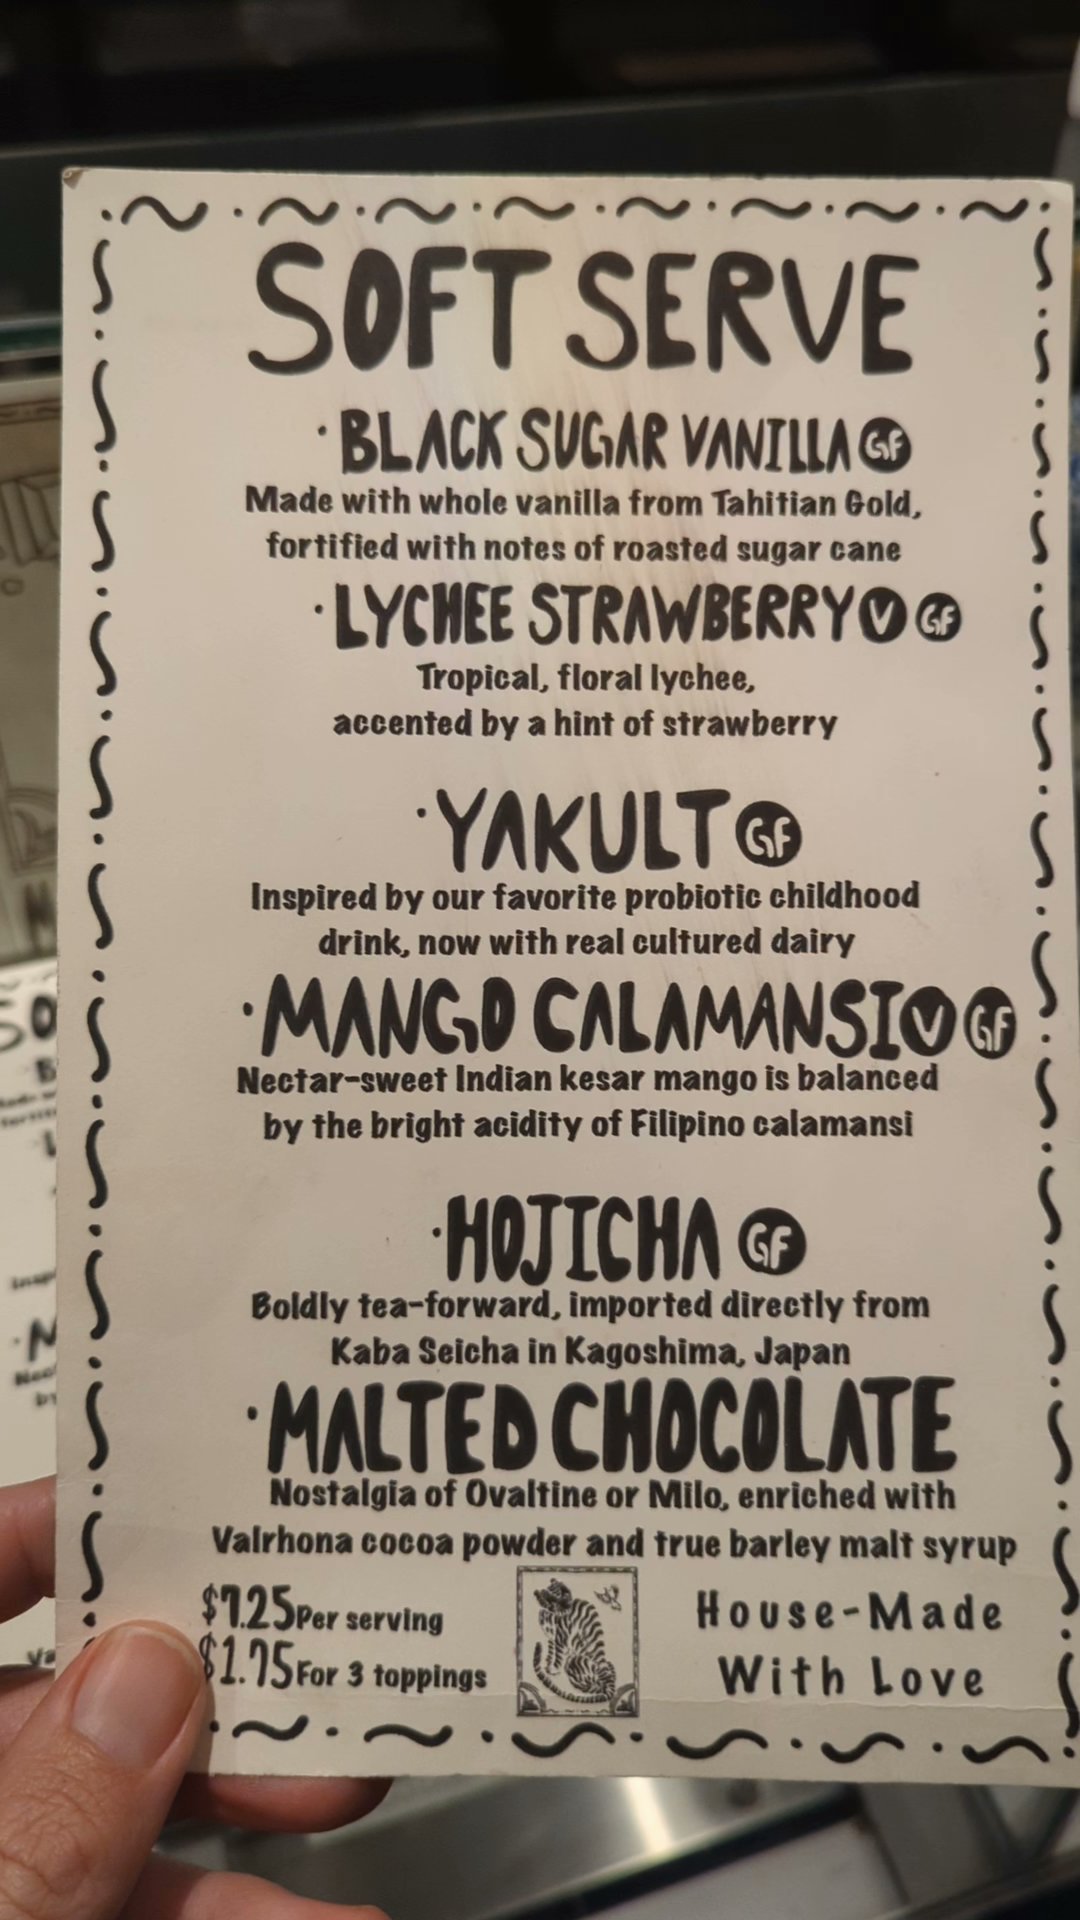 SOFT SERVE
· BLACK SUGAR VANILLA GF
Made with whole vanilla from Tahitian Gold,
fortified with notes of roasted sugar cane
· LYCHEE STRAWBERRY V GF
Tropical, floral lychee,
accented by a hint of strawberry
· YAKULT GF
Inspired by our favorite probiotic childhood
drink, now with real cultured dairy
· MANGO CALAMANSI V GF
Nectar-sweet Indian kesar mango is balanced
by the bright acidity of Filipino calamansi
· HOJICHA GF
Boldly tea-forward, imported directly from
Kaba Seicha in Kagoshima, Japan
· MALTED CHOCOLATE
Nostalgia of Ovaltine or Milo, enriched with
Valrhona cocoa powder and true barley malt syrup
$7.25 Per serving
$1.75 For 3 toppings
House-Made
With Love